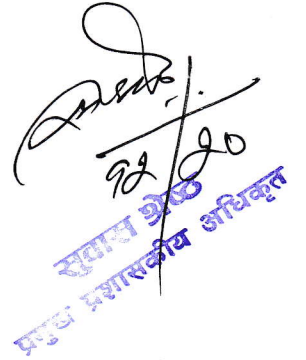 १२/२०
सुवास श्रेष्ठ
प्रमुख प्रशासकीय अधिकृत